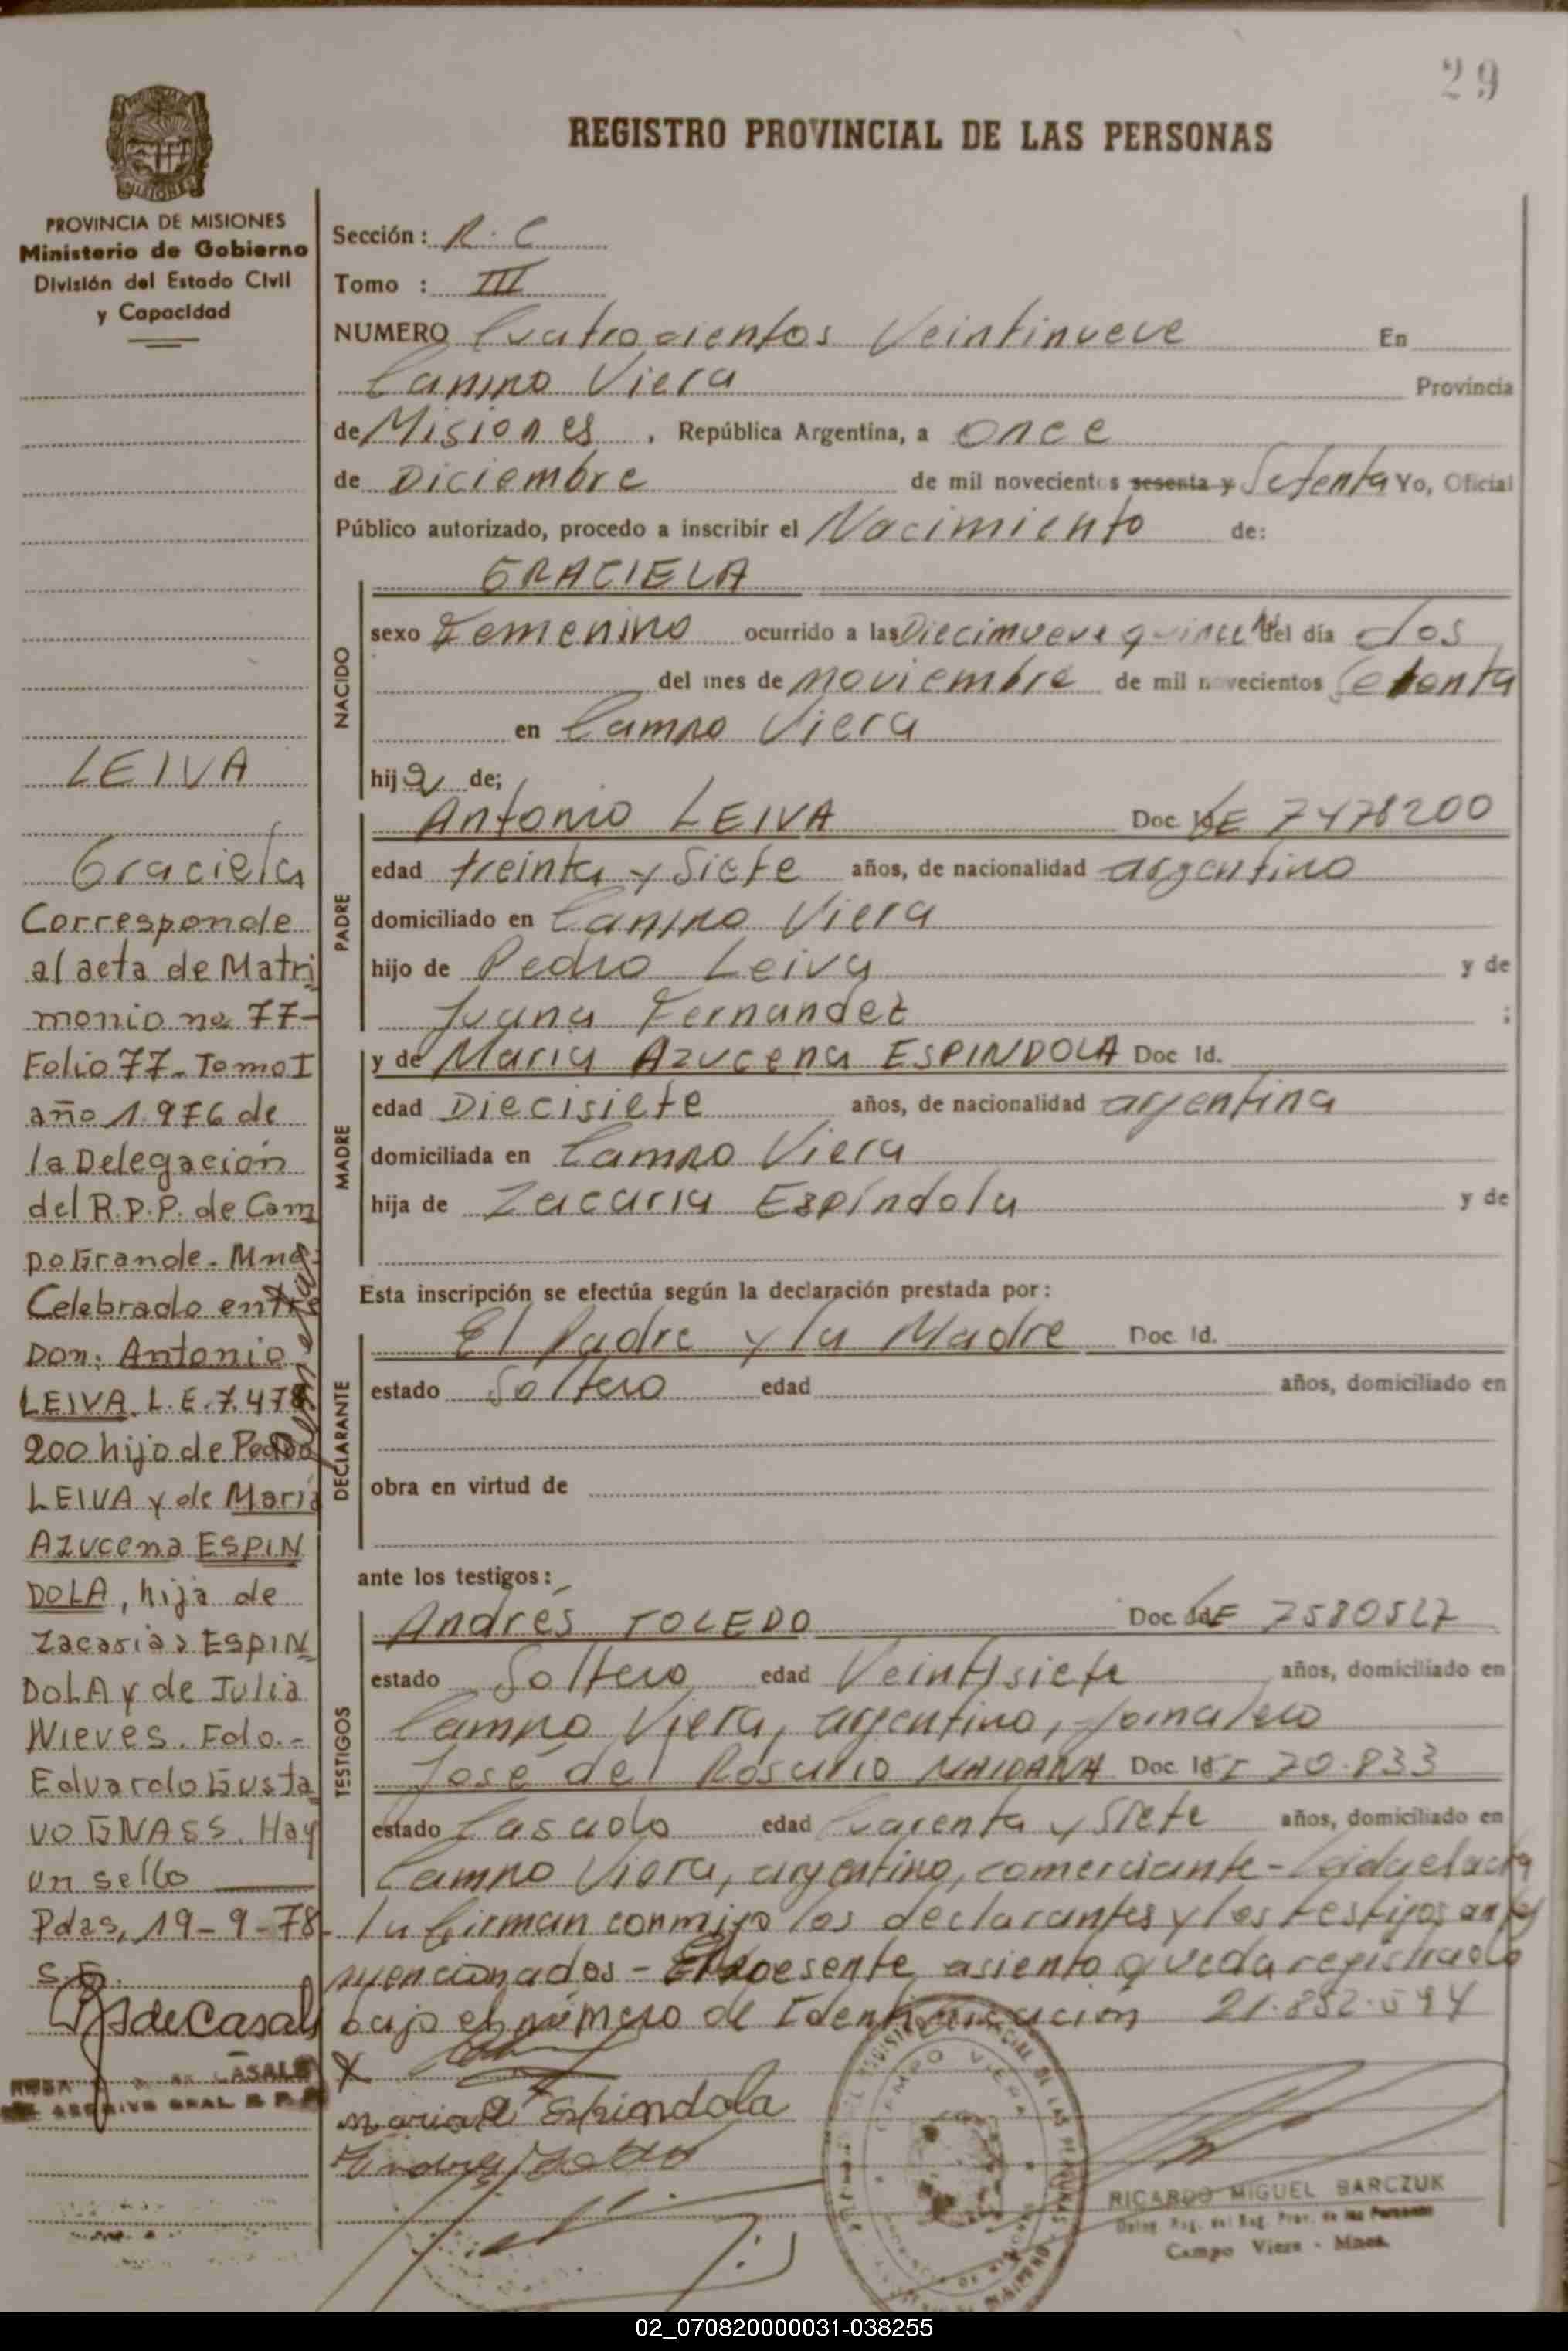 29
REGISTRO PROVINCIAL DE LAS PERSONAS
MISIONES
PROVINCIA DE MISIONES
Ministerio de Gobierno
División del Estado Civil
y Capacidad
LEIVA
Graciela
Corresponde
al acta de Matri
monio no 77-
Folio 77- Tomo I
año 1.976 de
la Delegación
del R.P.P. de Cam
po Grande - Mnes
Celebrado entre
Don: Antonio
LEIVA L.E. 7.478
200 hijo de Pedro
LEIVA y de María
Azucena ESPIN
DOLA, hija de
Zacarias ESPIN
DOLA y de Julia
Nieves. Fdo.-
Eduardo Gusta
vo GNASS. Hay
un sello
Pdas, 19-9-78
de Casals
CASALS
Sección: R.C
Tomo : III
NUMERO Cuatrocientos Veintinueve En
Campo Viera Provincia
de Misiones, República Argentina, a once
de Diciembre de mil novecientos sesenta y Setenta Yo, Oficial
Público autorizado, procedo a inscribir el Nacimiento de:
NACIDO
GRACIELA
sexo Femenino ocurrido a las Diecinueve quince del día dos
del mes de noviembre de mil novecientos Setenta
en Campo Viera
hija de;
PADRE
Antonio LEIVA Doc. LE 7478200
edad treinta y Siete años, de nacionalidad argentino
domiciliado en Campo Viera
hijo de Pedro Leiva y de
Juana Fernandez ;
MADRE
y de Maria Azucena ESPINDOLA Doc Id.
edad Diecisiete años, de nacionalidad argentina
domiciliada en Campo Viera
hija de Zacaria Espíndola y de
Esta inscripción se efectúa según la declaración prestada por:
DECLARANTE
El Padre y la Madre Doc Id.
estado Soltero edad años, domiciliado en
obra en virtud de
ante los testigos:
TESTIGOS
Andrés TOLEDO Doc LE 7580527
estado Soltero edad Veintisiete años, domiciliado en
Campo Viera, argentino, jornalero
José del Rosario MAIDANA Doc Id 20.833
estado Casado edad Cuarenta y Siete años, domiciliado en
Campo Viera, argentino, comerciante - Leida el acta
la firman conmigo los declarantes y los testigos antes
mencionados - El presente asiento queda registrado
bajo el número de Identificación 21.852.594
X
Maria A Espindola
CAMPO VIERA
RICARDO MIGUEL BARCZUK
Campo Viera - Mnes.
02_070820000031-038255